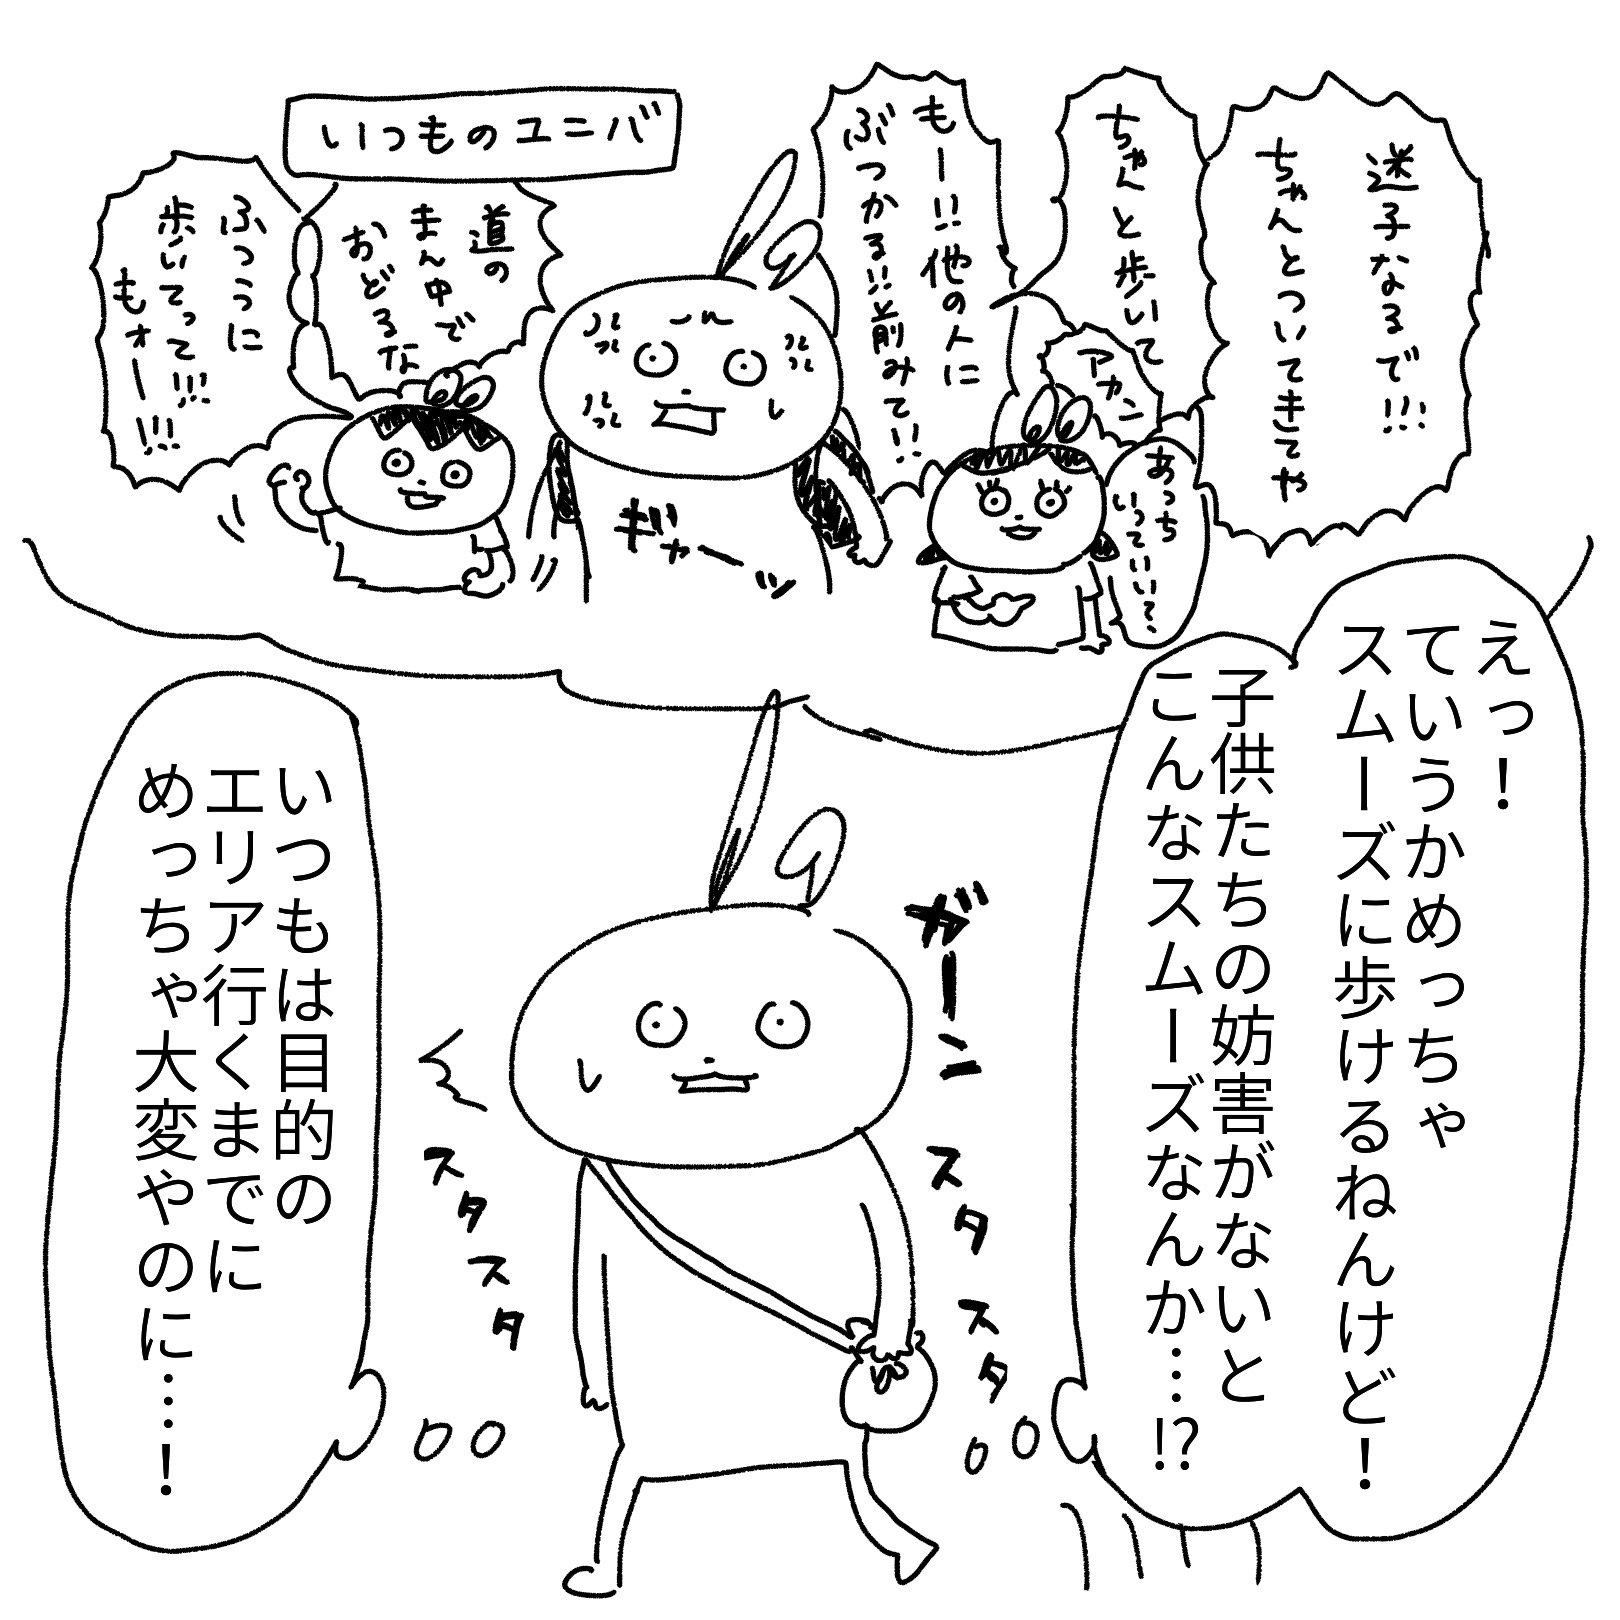 いつものユニバ
迷子なるで!!!
ちゃんとついてきてや
ちゃんと歩いて
アカン
あっち
いっていい?
もー!!他の人に
ぶつかる!!前みて!!
道の
まん中で
おどるな
ふつうに
歩いてって!!!
もォー!!!
ギャーッ
えっ!
ていうかめっちゃ
スムーズに歩けるねんけど!
子供たちの妨害がないと
こんなスムーズなんか…!?
ガーン
スタスタ
スタスタ
いつもは目的の
エリア行くまでに
めっちゃ大変やのに…!